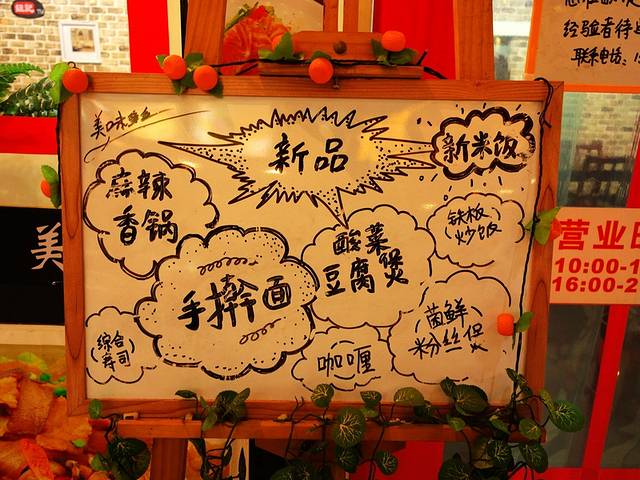 经验者待
联系电话:
美味
新品
新米饭
麻辣
香锅
酸菜
豆腐煲
铁板
炒饭
手擀面
综合
寿司
咖喱
菌鲜
粉丝保
美
营业
10:00-1
16:00-2